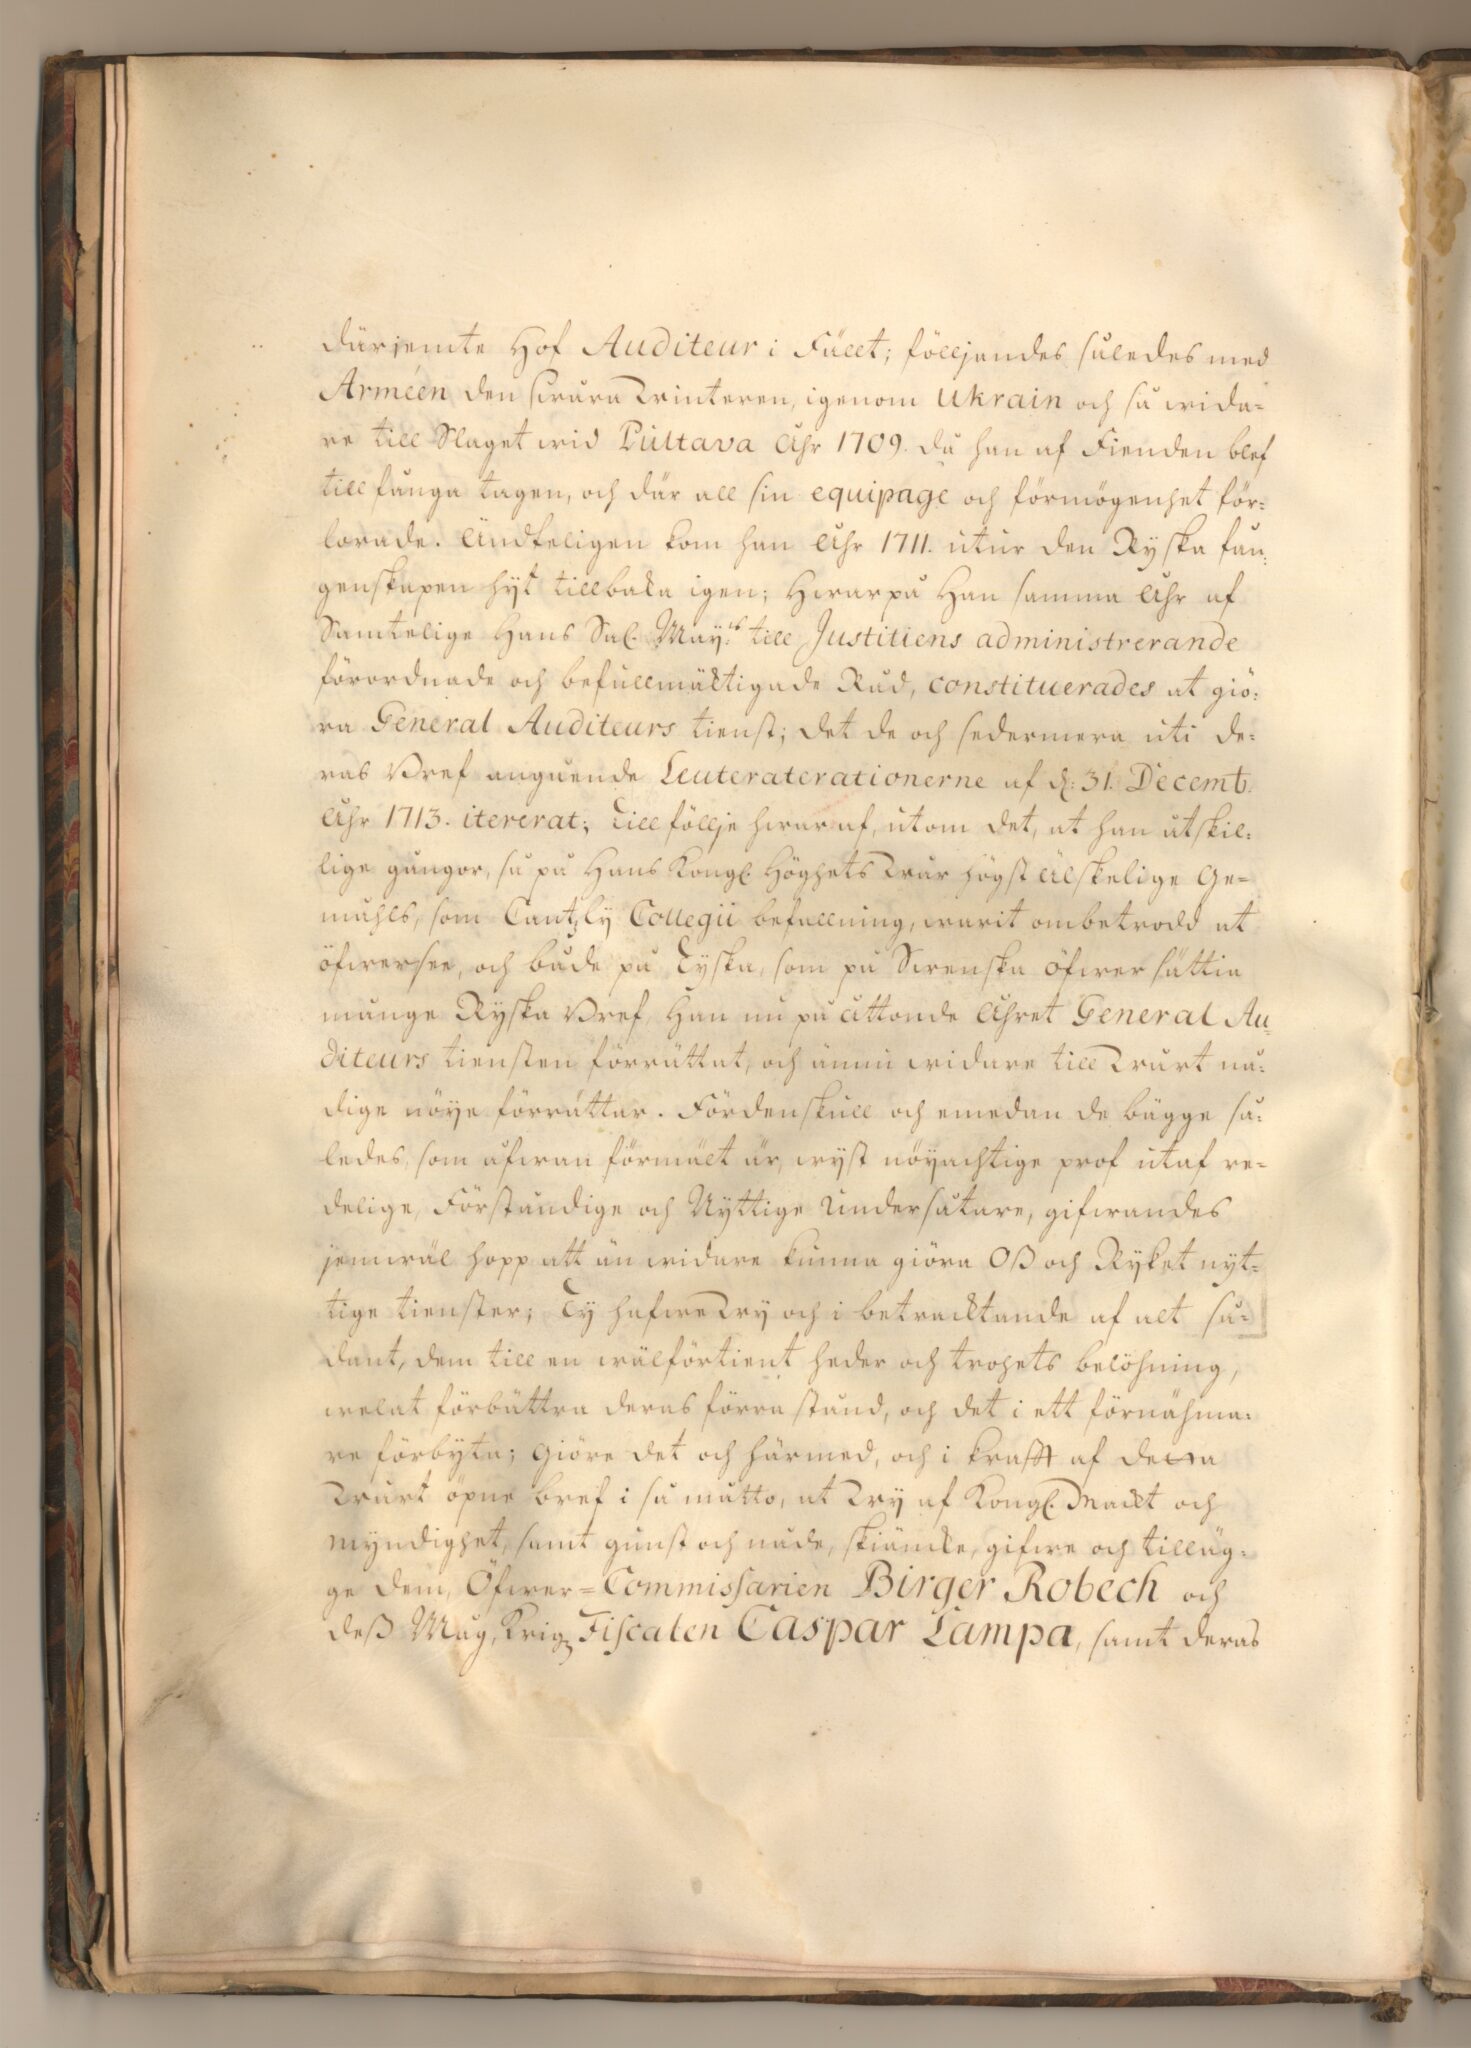 därjemte Hof Auditeur i Fället; följjandes således med
Arméen den swåra Winteren, igenom Ukrain och så wida-
re till Slaget wid Pultava Åhr 1709. då han af Fienden blef
till fånga tagen, och där all sin equipage och förmögenhet för-
lorade. Ändteligen kom han Åhr 1711. utur den Ryska fån-
genskapen hyt tillbaka igen; Hwarpå Han samma Åhr af
Samtelige Hans Sal. May:ts till Justitiens administrerande
förordnade och befullmäktigade Råd, constituerades at giö-
ra General Auditeurs tienst; det de och sedermera uti de-
ras Bref angående Leuteraterationerne af d: 31. Decemb.
Åhr 1713. itererat; Till föllje hwaraf, utom det, at han åtskil-
lige gångor, så på Hans Kongl. Höghets Wår högst Älskelige Ge-
mahls, som Cantzly Collegii befallning, warit ombetrodd at
öfwersee, och både på Tyska, som på Swenska öfwersättia
många Ryska Bref, Han nu på åttonde Åhret General Au-
diteurs tiensten förrättat, och ännu widare till Wårt nå-
dige nöye förrättar. Fördenskull och emedan de bägge så-
ledes, som åfwan förmält är, wyst nöyachtige prof utaf re-
delige, Förståndige och Nyttige Undersåtare, gifwandes
jemwäl hopp att än widare kunna giöra Oß och Ryket nyt-
tige tienster; Ty hafwe Wy och i betracktande af alt så-
dant, dem till en wälförtient heder och trohets belöhning,
welat förbättra deras förra stånd, och det i ett förnähma-
re förbyta; Giöre det och härmed, och i krafft af detta
Wårt öpne bref i så måtto, at Wy af Kongl. Mackt och
Myndighet, samt gunst och nåde, skiäncke, gifwe och tilläg-
ge dem, Öfwer-Commissarien Birger Robech och
deß Måg, Krigz Fiscalen Caspar Lampa, samt deras